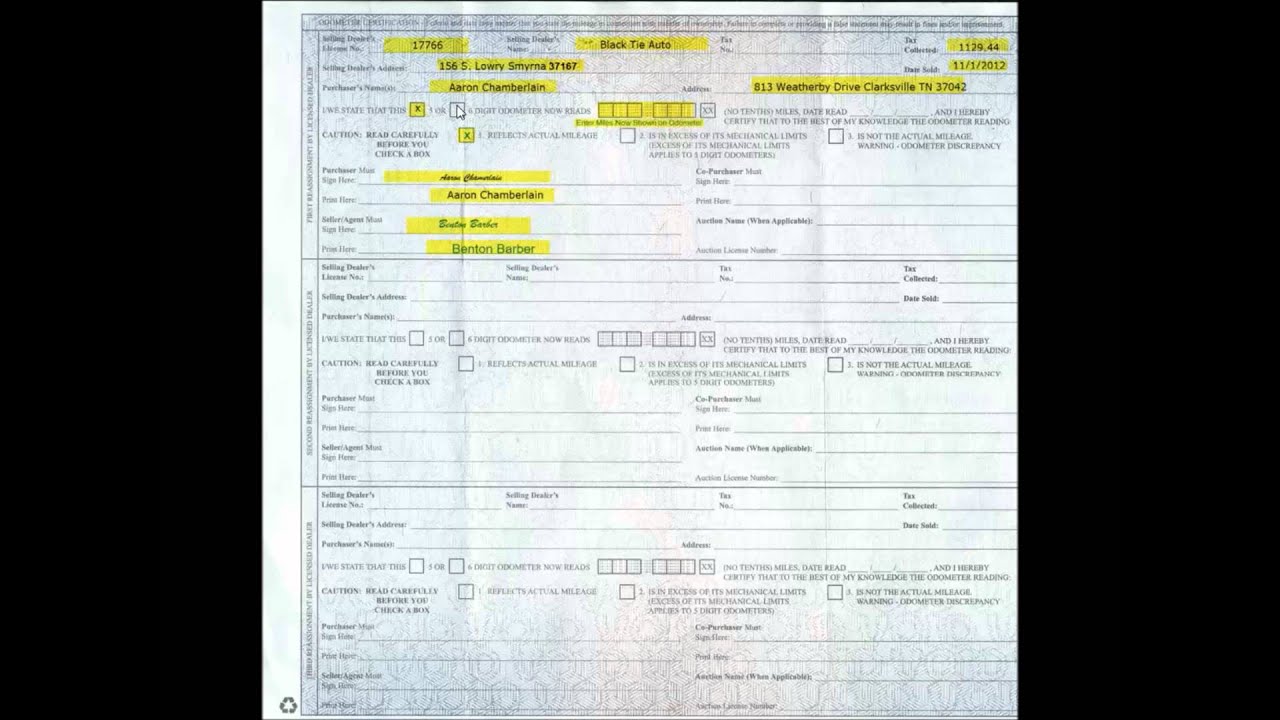 ODOMETER CERTIFICATION - Federal and state law require that you state the mileage in connection with transfer of ownership. Failure to complete or providing a false statement may result in fines and/or imprisonment.
FIRST REASSIGNMENT BY LICENSED DEALER
Selling Dealer's License No.: 17766 Selling Dealer's Name: Black Tie Auto Tax No.: Tax Collected: 1129.44
Selling Dealer's Address: 156 S. Lowry Smyrna 37167 Date Sold: 11/1/2012
Purchaser's Name(s): Aaron Chamberlain Address: 813 Weatherby Drive Clarksville TN 37042
I/WE STATE THAT THIS X 5 OR 6 DIGIT ODOMETER NOW READS XX (NO TENTHS) MILES, DATE READ ___/___/___, AND I HEREBY
Enter Miles Now Shown on Odometer CERTIFY THAT TO THE BEST OF MY KNOWLEDGE THE ODOMETER READING:
CAUTION: READ CAREFULLY X 1. REFLECTS ACTUAL MILEAGE 2. IS IN EXCESS OF ITS MECHANICAL LIMITS 3. IS NOT THE ACTUAL MILEAGE.
BEFORE YOU (EXCESS OF ITS MECHANICAL LIMITS WARNING - ODOMETER DISCREPANCY
CHECK A BOX APPLIES TO 5 DIGIT ODOMETERS)
Purchaser Must Sign Here: Aaron Chamerlain Co-Purchaser Must Sign Here:
Print Here: Aaron Chamberlain Print Here:
Seller/Agent Must Sign Here: Benton Barber Auction Name (When Applicable):
Print Here: Benton Barber Auction License Number:
SECOND REASSIGNMENT BY LICENSED DEALER
Selling Dealer's License No.: Selling Dealer's Name: Tax No.: Tax Collected:
Selling Dealer's Address: Date Sold:
Purchaser's Name(s): Address:
I/WE STATE THAT THIS 5 OR 6 DIGIT ODOMETER NOW READS XX (NO TENTHS) MILES, DATE READ ___/___/___, AND I HEREBY
CERTIFY THAT TO THE BEST OF MY KNOWLEDGE THE ODOMETER READING:
CAUTION: READ CAREFULLY 1. REFLECTS ACTUAL MILEAGE 2. IS IN EXCESS OF ITS MECHANICAL LIMITS 3. IS NOT THE ACTUAL MILEAGE.
BEFORE YOU (EXCESS OF ITS MECHANICAL LIMITS WARNING - ODOMETER DISCREPANCY
CHECK A BOX APPLIES TO 5 DIGIT ODOMETERS)
Purchaser Must Sign Here: Co-Purchaser Must Sign Here:
Print Here: Print Here:
Seller/Agent Must Sign Here: Auction Name (When Applicable):
Print Here: Auction License Number:
THIRD REASSIGNMENT BY LICENSED DEALER
Selling Dealer's License No.: Selling Dealer's Name: Tax No.: Tax Collected:
Selling Dealer's Address: Date Sold:
Purchaser's Name(s): Address:
I/WE STATE THAT THIS 5 OR 6 DIGIT ODOMETER NOW READS XX (NO TENTHS) MILES, DATE READ ___/___/___, AND I HEREBY
CERTIFY THAT TO THE BEST OF MY KNOWLEDGE THE ODOMETER READING:
CAUTION: READ CAREFULLY 1. REFLECTS ACTUAL MILEAGE 2. IS IN EXCESS OF ITS MECHANICAL LIMITS 3. IS NOT THE ACTUAL MILEAGE.
BEFORE YOU (EXCESS OF ITS MECHANICAL LIMITS WARNING - ODOMETER DISCREPANCY
CHECK A BOX APPLIES TO 5 DIGIT ODOMETERS)
Purchaser Must Sign Here: Co-Purchaser Must Sign Here:
Print Here: Print Here:
Seller/Agent Must Sign Here: Auction Name (When Applicable):
Print Here: Auction License Number: